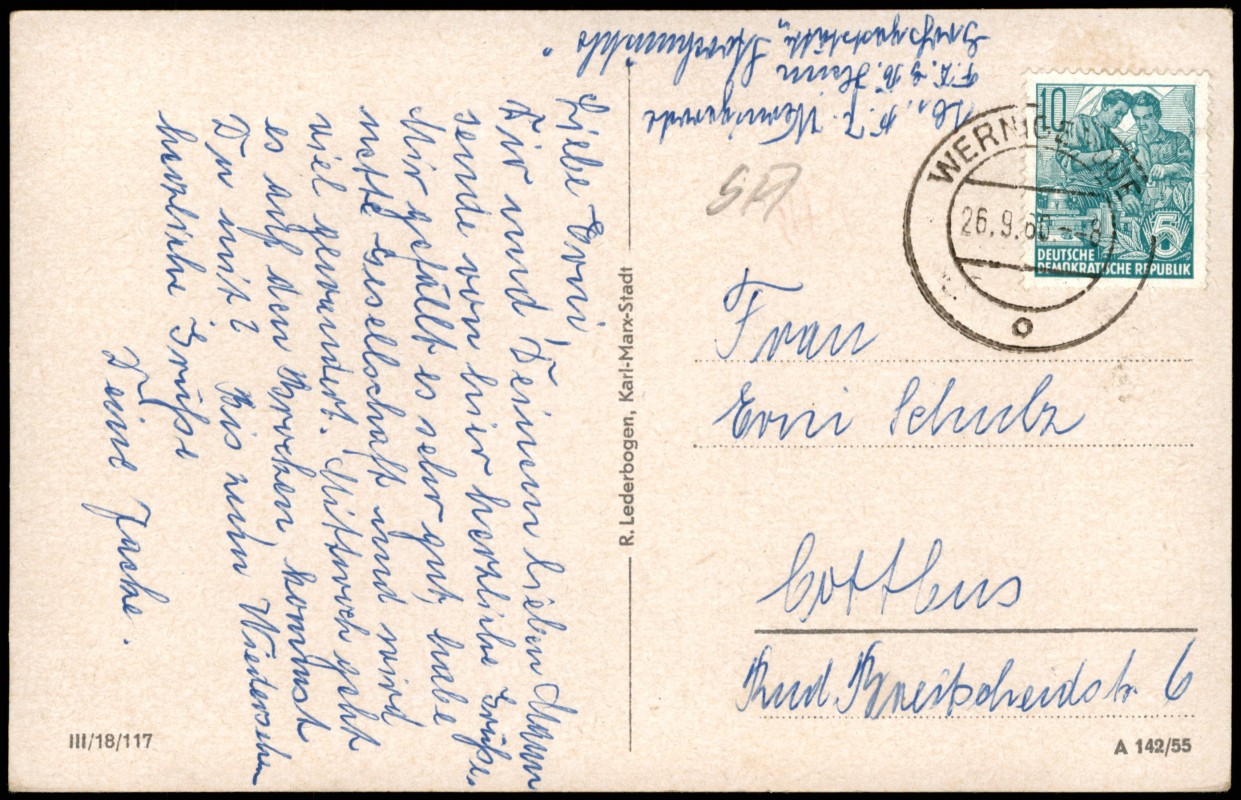 Liebe Erni,
Dir und Deinem lieben Mann
sende von hier herzliche Grüße.
Mir gefällt es sehr gut, habe
nette Gesellschaft und wird
viel gewandert. Mittwoch geht
es auf den Brocken, kommst
Du mit? Bis zum Wiedersehen
herzliche Grüße
Deine
R. Lederbogen, Karl-Marx-Stadt
Abs. Wernigerode
10
WERNIGERODE
26.9.60-18
5
DEUTSCHE
DEMOKRATISCHE REPUBLIK
Frau
Erni Schulz
Cottbus
Rud Breitscheidstr 6
III/18/117
A 142/55